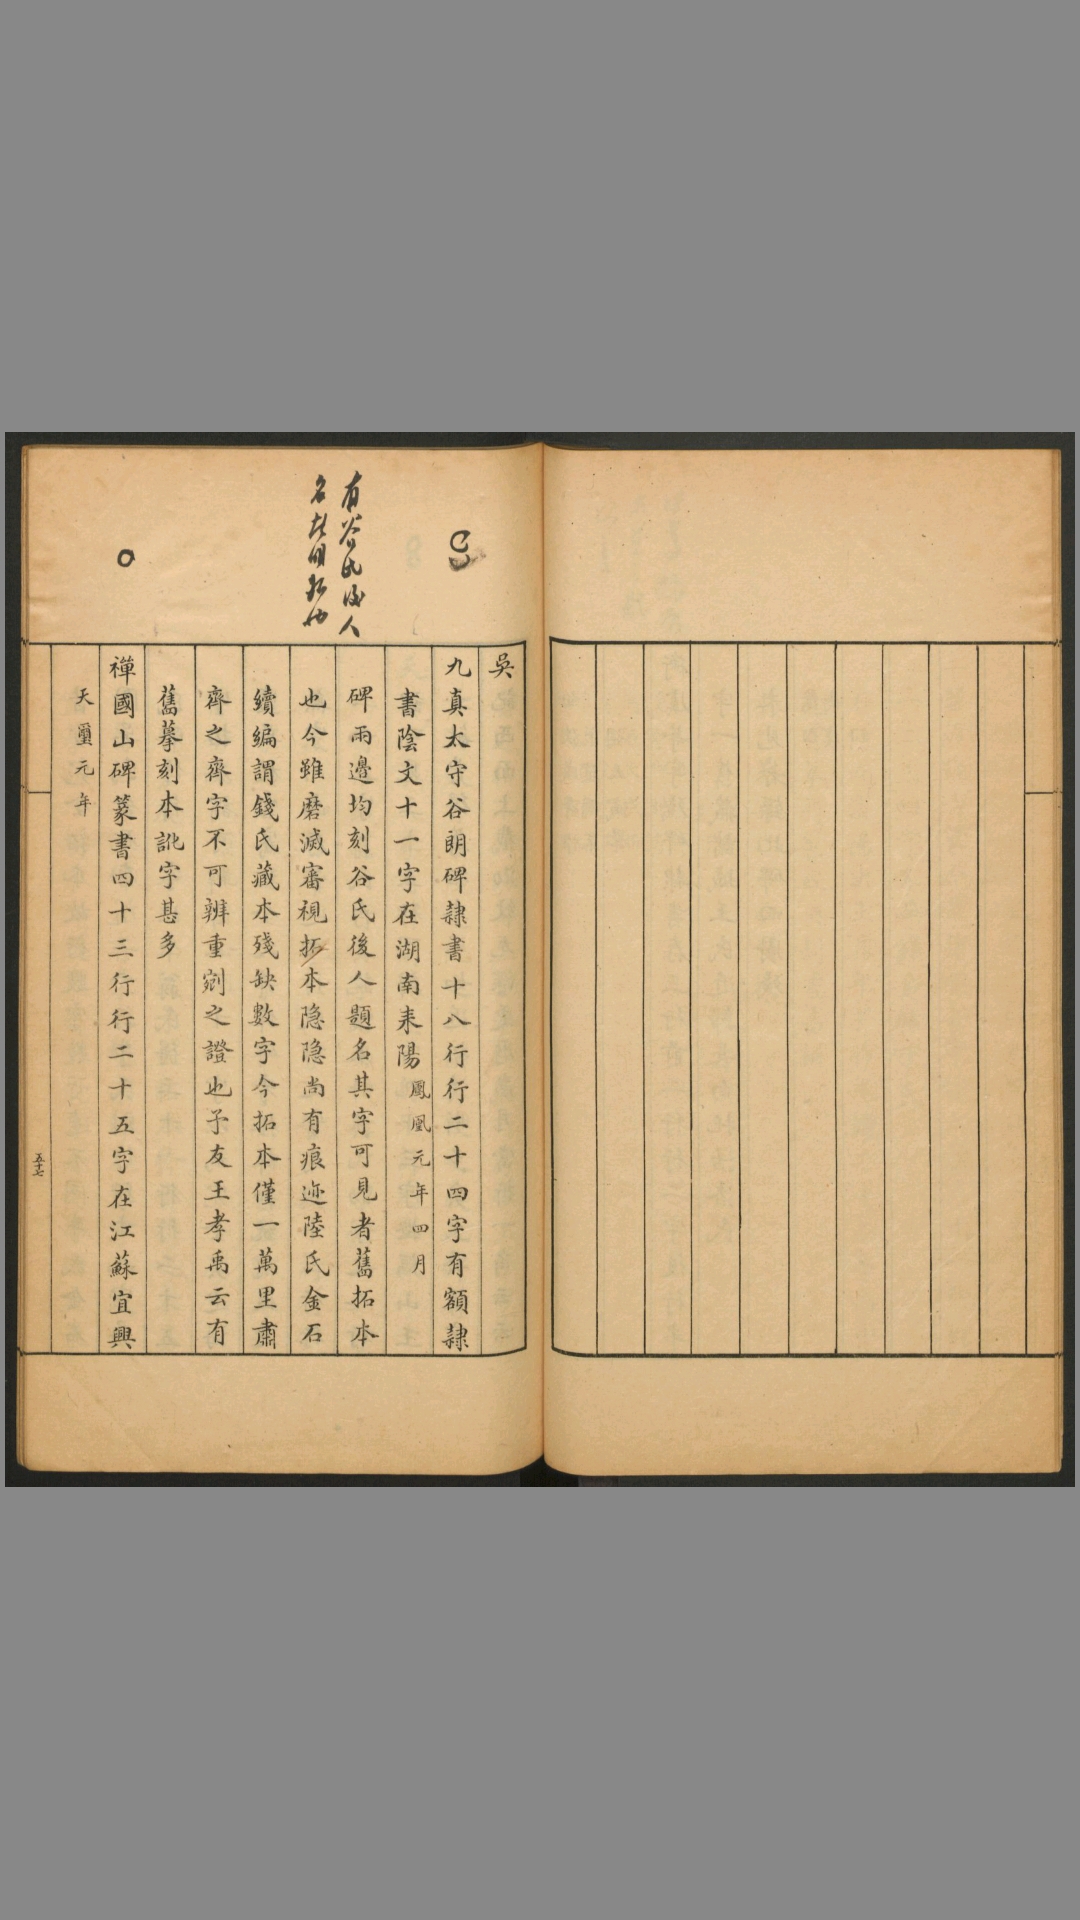 有谷氏後人
名
吳
九真太守谷朗碑隷書十八行行二十四字有額隷
書陰文十一字在湖南耒陽鳳凰元年四月
碑兩邊均刻谷氏後人題名其字可見者舊拓本
也今雖磨滅審視拓本隐隐尚有痕迹陸氏金石
續編謂錢氏藏本殘缺數字今拓本僅一萬里肅
齊之齊字不可辨重剜之證也予友王孝禹云有
舊摹刻本訛字甚多
禪國山碑篆書四十三行行二十五字在江蘇宜興
天璽元年
五十七